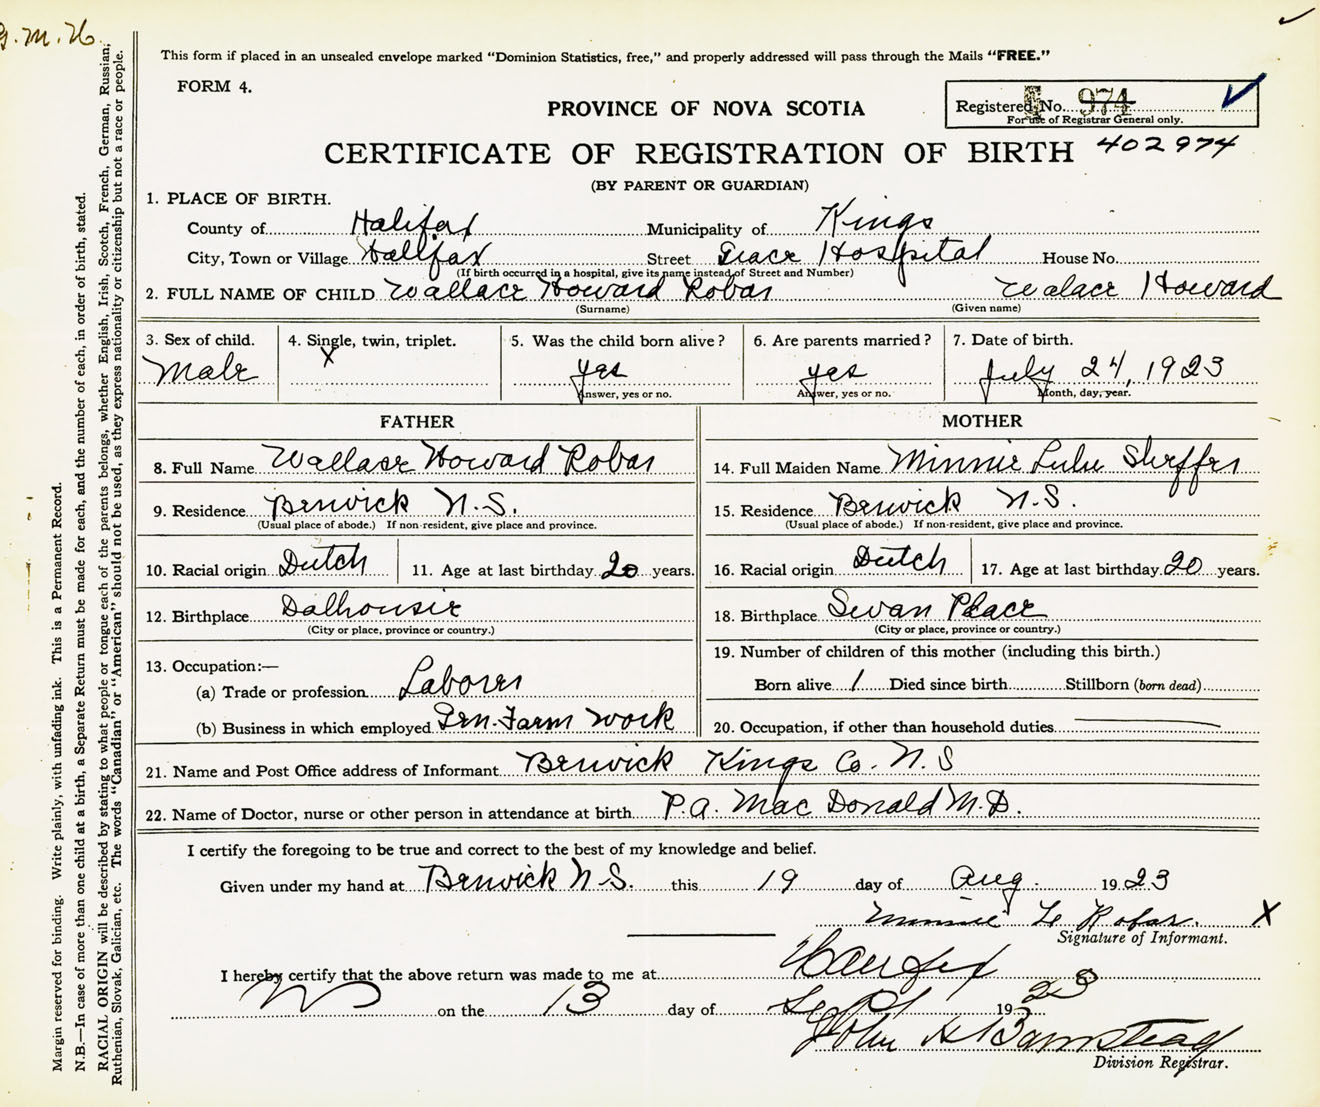 G. M. H.
This form if placed in an unsealed envelope marked "Dominion Statistics, free," and properly addressed will pass through the Mails "FREE."
FORM 4.
PROVINCE OF NOVA SCOTIA
Registered No. 974
For use of Registrar General only.
CERTIFICATE OF REGISTRATION OF BIRTH 402974
(BY PARENT OR GUARDIAN)
1. PLACE OF BIRTH.
County of Halifax Municipality of Kings
City, Town or Village Halifax Street Grace Hospital House No.
(If birth occurred in a hospital, give its name instead of Street and Number)
2. FULL NAME OF CHILD Wallace Howard Robar Walace Howard
(Surname) (Given name)
3. Sex of child. 4. Single, twin, triplet. 5. Was the child born alive? 6. Are parents married? 7. Date of birth.
Male X yes yes July 24, 1923
Answer, yes or no. Answer, yes or no. Month, day, year.
FATHER MOTHER
8. Full Name Wallace Howard Robar 14. Full Maiden Name Minnie Lulu Sheffer
9. Residence Berwick N.S. 15. Residence Berwick N.S.
(Usual place of abode.) If non-resident, give place and province. (Usual place of abode.) If non-resident, give place and province.
10. Racial origin Dutch 11. Age at last birthday 20 years. 16. Racial origin Dutch 17. Age at last birthday 20 years.
12. Birthplace Dalhousie 18. Birthplace Swan Place
(City or place, province or country.) (City or place, province or country.)
13. Occupation:— 19. Number of children of this mother (including this birth.)
(a) Trade or profession Laborer Born alive 1 Died since birth Stillborn (born dead)
(b) Business in which employed Gen. Farm work 20. Occupation, if other than household duties
21. Name and Post Office address of Informant Berwick Kings Co. N.S
22. Name of Doctor, nurse or other person in attendance at birth P.A. MacDonald M.D.
I certify the foregoing to be true and correct to the best of my knowledge and belief.
Given under my hand at Berwick N.S. this 19 day of Aug. 1923
Minnie L Robar. X
Signature of Informant.
I hereby certify that the above return was made to me at Halifax
NS on the 13 day of Sept 1923
John A Barnstead
Division Registrar.
Margin reserved for binding. Write plainly, with unfading ink. This is a Permanent Record.
N.B.—In case of more than one child at a birth, a Separate Return must be made for each, and the number of each, in order of birth, stated.
RACIAL ORIGIN will be described by stating to what people or tongue each of the parents belongs, whether English, Irish, Scotch, French, German, Russian,
Ruthenian, Slovak, Galician, etc. The words "Canadian" or "American" should not be used, as they express nationality or citizenship but not a race or people.